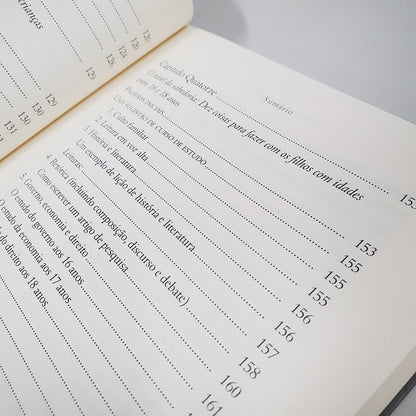 crianças
120
120
124
126
129
129
130
130
131
Sumário
Capítulo Quatorze
O nível da sabedoria: Dez coisas para fazer com os filhos com idades
entre 16 e 18 anos
PALAVRAS INICIAIS 153
UMA SUGESTÃO DE CURSO DE ESTUDO 153
1. Culto familiar 155
2. Leitura em voz alta 155
3. História e literatura 155
Um exemplo de lição de história e literatura 156
Leituras 156
4. Retórica (incluindo composição, discurso e debate) 157
Como escrever um artigo de pesquisa 158
5. Governo, economia e direito 160
O estudo do governo aos 16 anos 161
O estudo da economia aos 17 anos
do direito aos 18 anos